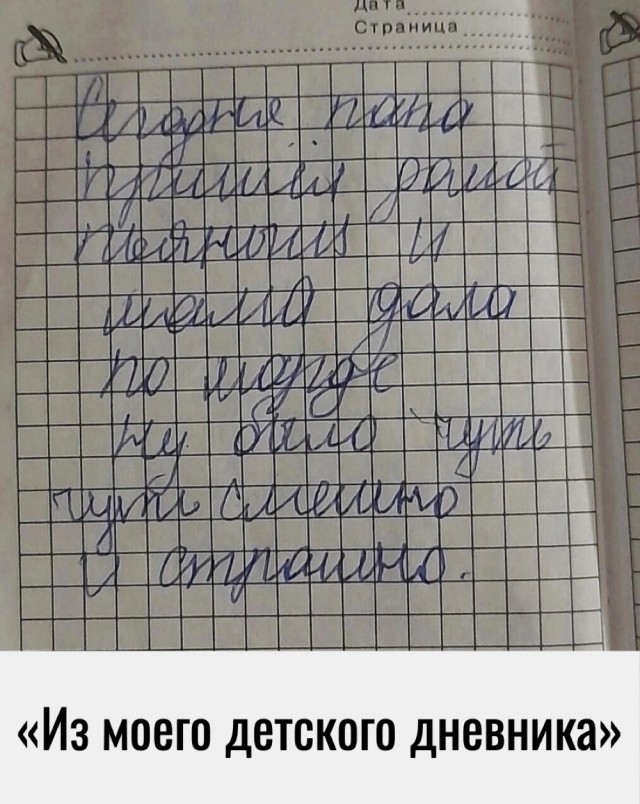 Дата
Страница
Сегодня папа
пришёл домой
пьяный и
мама дала
по морде
ну было чуть
чуть смешно
и страшно.
«Из моего детского дневника»